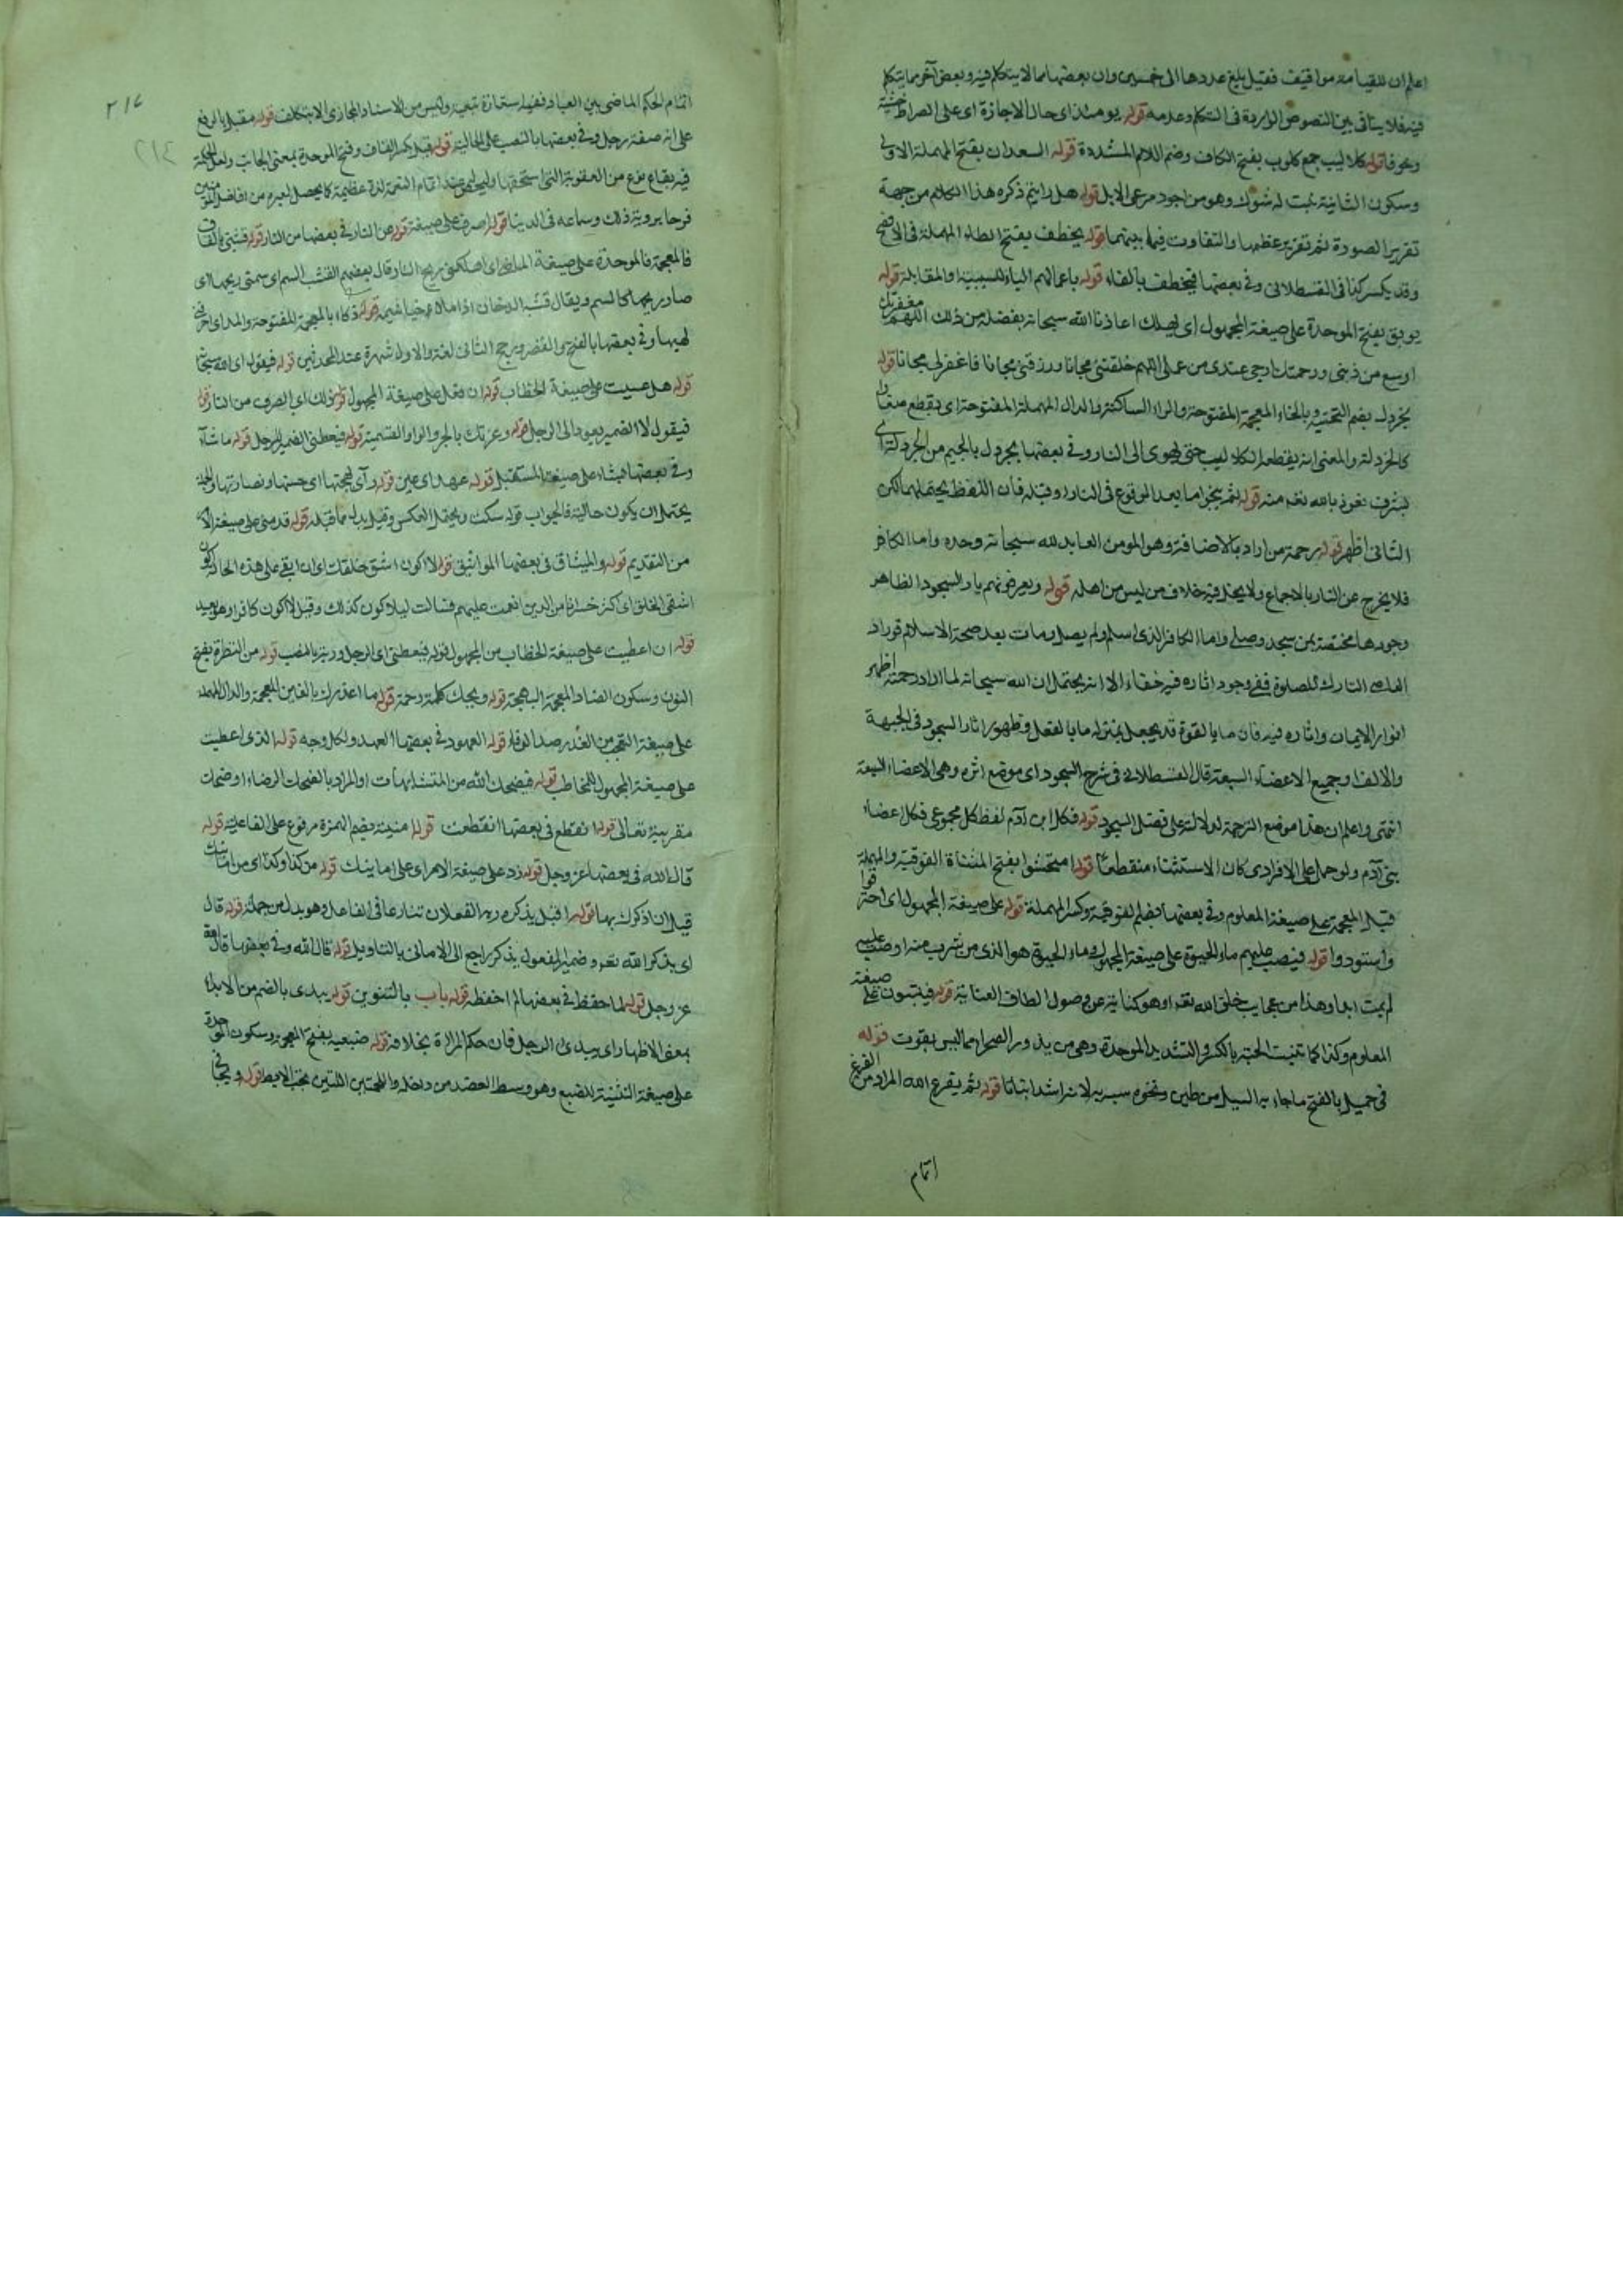 اعلم ان للقيامة مواقيف فقيل بلغ عددها الى خمسين وان بعضها مما لا يتكلم فيه وبعض آخر مما يتكلم
فيه فلا ينافي بين النصوص الواردة في التكلم وعدمه قوله يومئذ اي حال الاجازة اي على الصراط خشية
ونحوها قوله كلاليب جمع كلوب بفتح الكاف وضم اللام المشددة قوله السعدان بفتح المهملة الاولى
وسكون الثانية نبت له شوك وهو من اجود مرعى الابل قوله هل رايتم ذكره هذا الكلام من جهة
تقرير الصورة ثم تقرير عظمها والتفاوت فيما بينهما قوله يخطف بفتح الطاء المهملة في الافصح
وقد يكسر كذا في القسطلاني وفي بعضها فيختطف بالفاء قوله باعمالهم الباء للسببية او المقابلة قوله
يوبق بفتح الموحدة على صيغة المجهول اي يهلك اعاذنا الله سبحانه بفضله من ذلك اللهم مغفرتك
اوسع من ذنبي ورحمتك ارجى عندي من عملي اللهم خلقتني مجانا ورزقتني مجانا فاغفر لي مجانا قوله
يخردل بضم التحتية وبالخاء المعجمة المفتوحة والراء الساكنة والدال المهملة المفتوحة اي يقطع صغارا
كالخردلة والمعنى انه يقطعه الكلاليب حتى يهوى الى النار وفي بعضها يجردل بالجيم من الجردلة اي
يشرف نعوذ بالله نعم منه قوله ثم ينجو اما بعد الوقوع في النار او قبله فان اللفظ يحتملهما لكن
الثاني اظهر قوله برحمة من اراد بالاضافة وهو المومن العابد لله سبحانه وحده واما الكافر
فلا يخرج عن النار بالاجماع ولا يخل فيه خلاف من ليس من اهله قوله ويعرفونهم باثر السجود الظاهر
وجودها مختصة بمن سجد وصلى واما الكافر الذي اسلم ولم يصل ومات بعد صحة الاسلام فوراد
التارك للصلوة ففي وجود اثاره فيه خفاء الا انه يحتمل ان الله سبحانه لما اراد رحمته اظهر
انوار الايمان واثاره فيه فان ما بالقوة قد يجعل بمنزلة ما بالفعل وظهور اثار السجود في الجبهة
والانف او جميع الاعضاء السبعة قال القسطلاني في شرح السجود اي موضع اثره وهي الاعضاء السبعة
انتهى واعلم ان هذا موضع الترجمة لدلالته على فضل السجود قوله فكل ابن آدم لفظ كل مجموعي فكل اعضاء
بني آدم ولو حمل على الافرادي كان الاستثناء منقطعا قوله امتحشوا بفتح المثناة الفوقية والمهملة
قبل المعجمة على صيغة المعلوم وفي بعضها بضم الفوقية وكسر المهملة قوله على صيغة المجهول اي احترقوا
واستودوا قوله فيصب عليهم ماء الحيوة على صيغة المجهول وماء الحيوة هو الذي من شرب منه او صب عليه
لم يمت ابدا وهذا من عجايب خلق الله تعه او هو كناية عن وصول الطاف العناية قوله فينبتون على صيغة
المعلوم وكذا كما تنبت الحبة بالكسر والتشديد الموحدة وهي من بذور الصحراء مما ليس بقوت قوله
في حميل بالفتح ما جاء به السيل من طين ونحوه سببه لانه اشد انباتا قوله ثم يفرغ الله المراد من الفرغ
اتمام
٢١٤
اتمام الحكم الماضي بين العباد ففيه استعارة تبعية وليس من الاسناد المجازي الا بتكلف قوله مقبل بالرفع
على انه صفة رجل وفي بعضها بالنصب على الحالية قوله قبل بكسر القاف وفتح الموحدة بمعنى الجانب ولعل الحكمة
فيه بقاع نوع من العقوبة التي استحقها وليحصل عند اتمام النعمة لذة عظيمة كما يحصل لغيره من افاضل المؤمنين
فرحا بروية ذلك وسماعه في الدنيا قوله اصرف على صيغة قوله عن النار في بعضها من النار قوله قشبني بالقاف
فالمعجمة فالموحدة على صيغة الماضي اي اهلكني ريح النار قال بعضهم القشب السم اي سمتني ريحها اي
صار ريحها كالسم ويقال قشبه الدخان اذا ملأ خياشيمه قوله ذكاء بالمعجمة المفتوحة والمد اي احرقني
لهبها وفي بعضها بالفتح والقصر ويرجح الثاني لغة والاول شهرة عند المحدثين قوله فيقول اي الله سبحانه
قوله هل عسيت على صيغة الخطاب قوله ان فعل على صيغة المجهول قوله ذلك اي الصرف من النار قوله
فيقول لا الضمير يعود الى الرجل قوله وعزتك بالجر والواو القسمية قوله فيعطي الضمير للرجل قوله ما شاء
وفي بعضها يشاء على صيغة المستقبل قوله عهد اي عين قوله رأى بهجتها اي حسنها ونضارتها والجملة
يحتمل ان يكون حالية فالجواب قوله سكت ويحتمل العكس وقيل بدل مما قبله قوله قدمني على صيغة الامر
من التقديم قوله والميثاق في بعضها المواثيق قوله لا اكون اشقى خلقك اي ان ابقى على هذه الحالة اكون
اشقى الخلق اي اكثر خسرانا من الذين انعمت عليهم فسالت ليلا كون كذلك وقيل لا اكون كافرا وهو بعيد
قوله ان اعطيت على صيغة الخطاب من المجهول قوله فيعطي اي الرجل وربه بالنصب قوله من النضرة بفتح
النون وسكون الضاد المعجمة البهجة قوله ويحك كلمة رحمة قوله ما اغدرك بالغين المعجمة والدال المهملة
على صيغة التعجب من الغدر ضد الوفاء قوله العهود في بعضها العهد ولكل وجه قوله الذي اعطيت
على صيغة المجهول للمخاطب قوله فيضحك الله من المتشابهات او المراد بالضحك الرضاء او ضحك
مقربيه تعالى قوله انقطع في بعضها انقطعت قوله امنيته بضم الهمزة مرفوع على الفاعلية قوله
قال الله في بعضها عز وجل قوله زد على صيغة الامر اي على امانيك قوله من كذا وكذا اي من امانيك
قبل ان اذكرك بها قوله اقبل يذكره ربه الفعلان تنازعا في الفاعل وهو بدل من جملة قوله قال
اي يذكر الله تعه وضمير المفعول يذكر راجع الى الاماني بالتاويل قوله قال الله وفي بعضها قال الله
عز وجل قوله لما حفظ في بعضها لم احفظه قوله باب بالتنوين قوله يبدي بالضم من الابداء
بمعنى الاظهار اي يبدي الرجل فان حكم المراة بخلافه قوله ضبعيه بفتح المعجمة وسكون الموحدة
على صيغة التثنية للضبع وهو وسط العضد من داخله واللحمتين اللتين تحت الابط قوله ويجافي